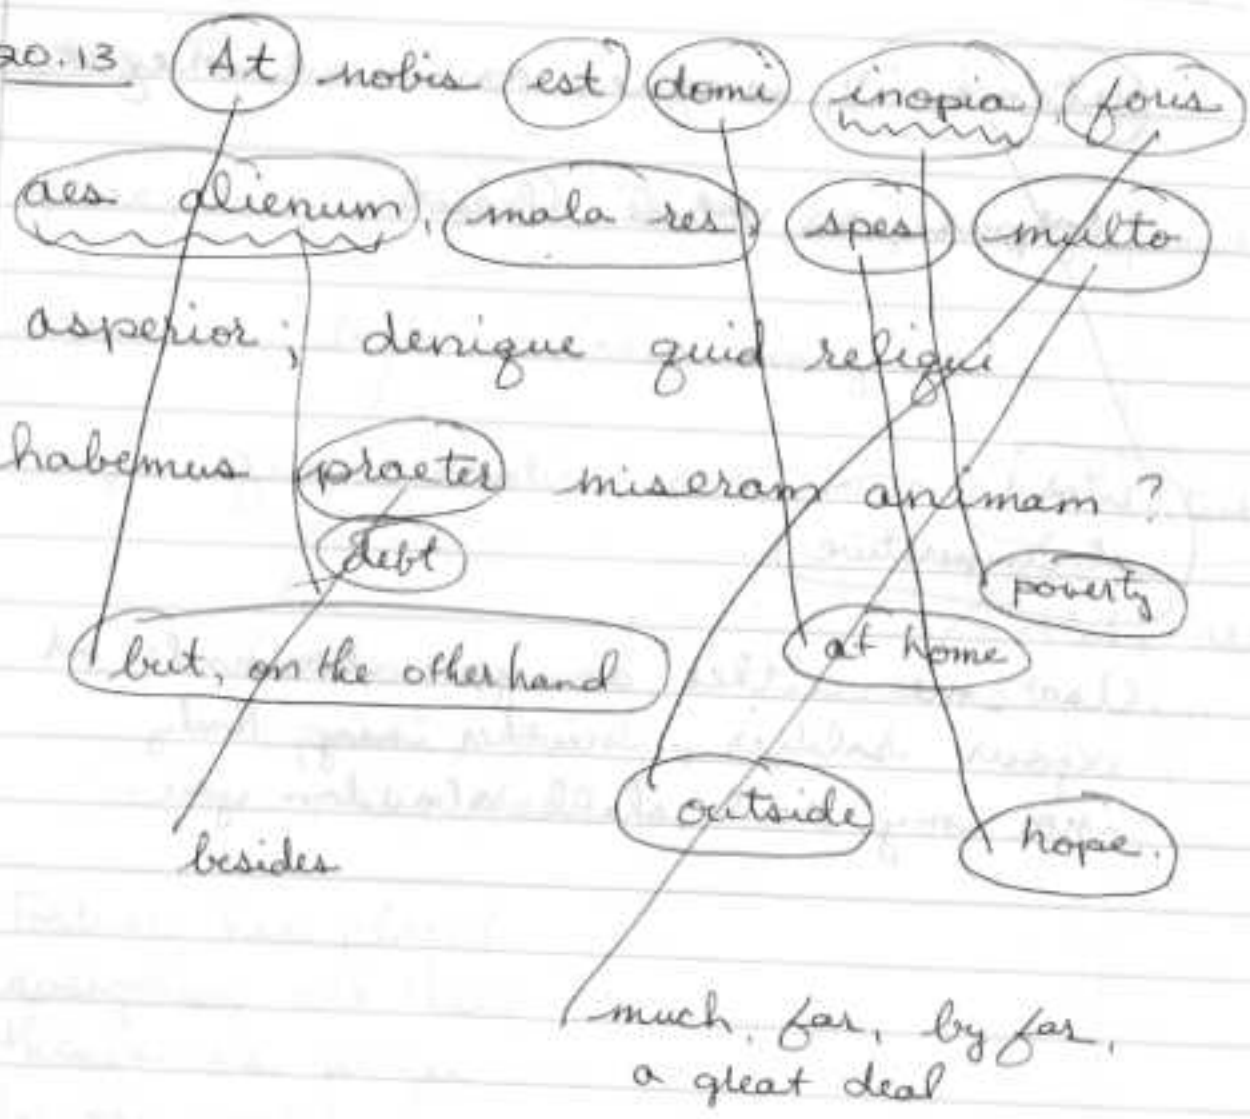 20.13 At nobis est domi inopia, foris
aes alienum, mala res, spes multo
asperior; denique quid reliqui
habemus praeter miseram animam?
debt
poverty
but, on the other hand
at home
outside
hope.
besides
much, far, by far,
a great deal